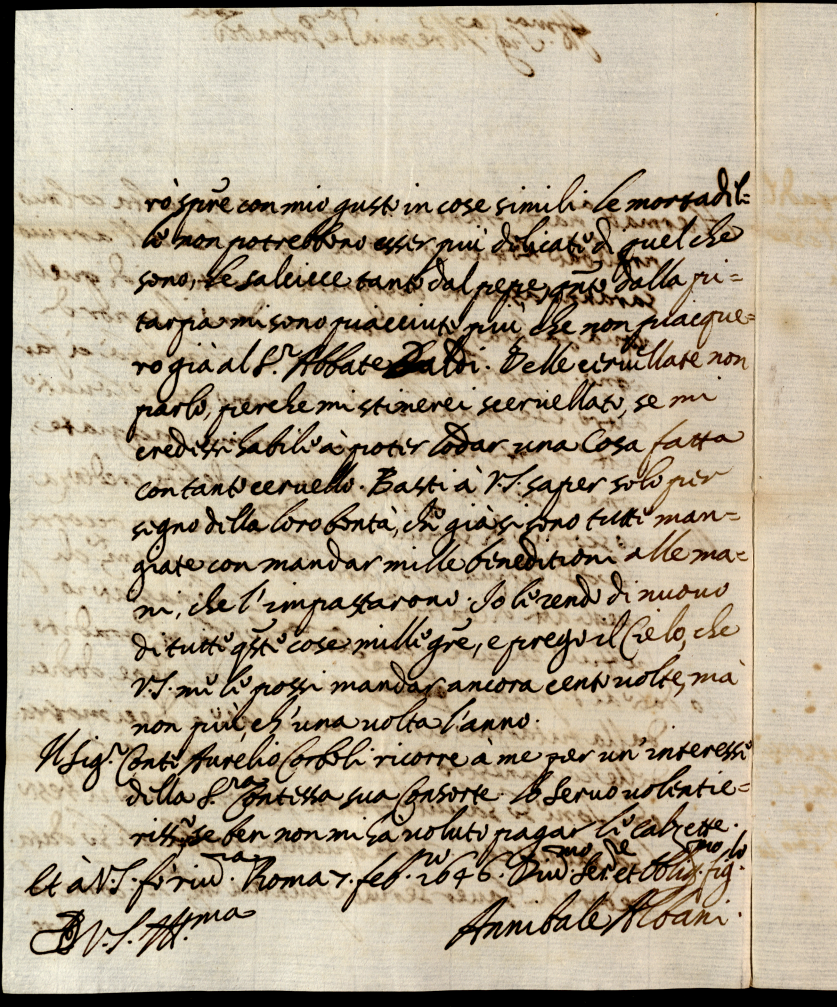 rò spre con mio gusto in cose simili. le mortadel=
le non potrebbono esser più delicate di quel che
sono, le salcicce tanto dal pepe, qnto dalla pi=
tarpa mi sono piacciute più, che non piacque=
ro già al S.r Abbate Baldi. Delle ceruellate non
parlo, perche mi stimerei sceruellato, se mi
credessi habile à poter lodar una Cosa fatta
con tanto ceruello. Basti à V.S. saper solo per
segno della loro bontà, che già si sono tutte man=
giate con mandar mille beneditioni alle ma=
ni, che l'impastarono. Io le rendo di nuouo
di tutte qste cose mille gre, e prego il Cielo, che
V.S. me le possi mandar ancora cento uolte, mà
non più, ch'una uolta l'anno.
Il Sig.r Conte Aurelio Corboli ricorre à me per un'interesse
della S.ra Contessa sua Consorte. lo seruo uolentie=
riss.o, se ben non mi hà uoluto pagar le calzette.
Et à V.S. fo riu.a Roma 7. feb.ro 1646. Diu.mo Ser.re et Oblig.mo fig.lo
D V.S. Ill.ma
Annibale Albani.